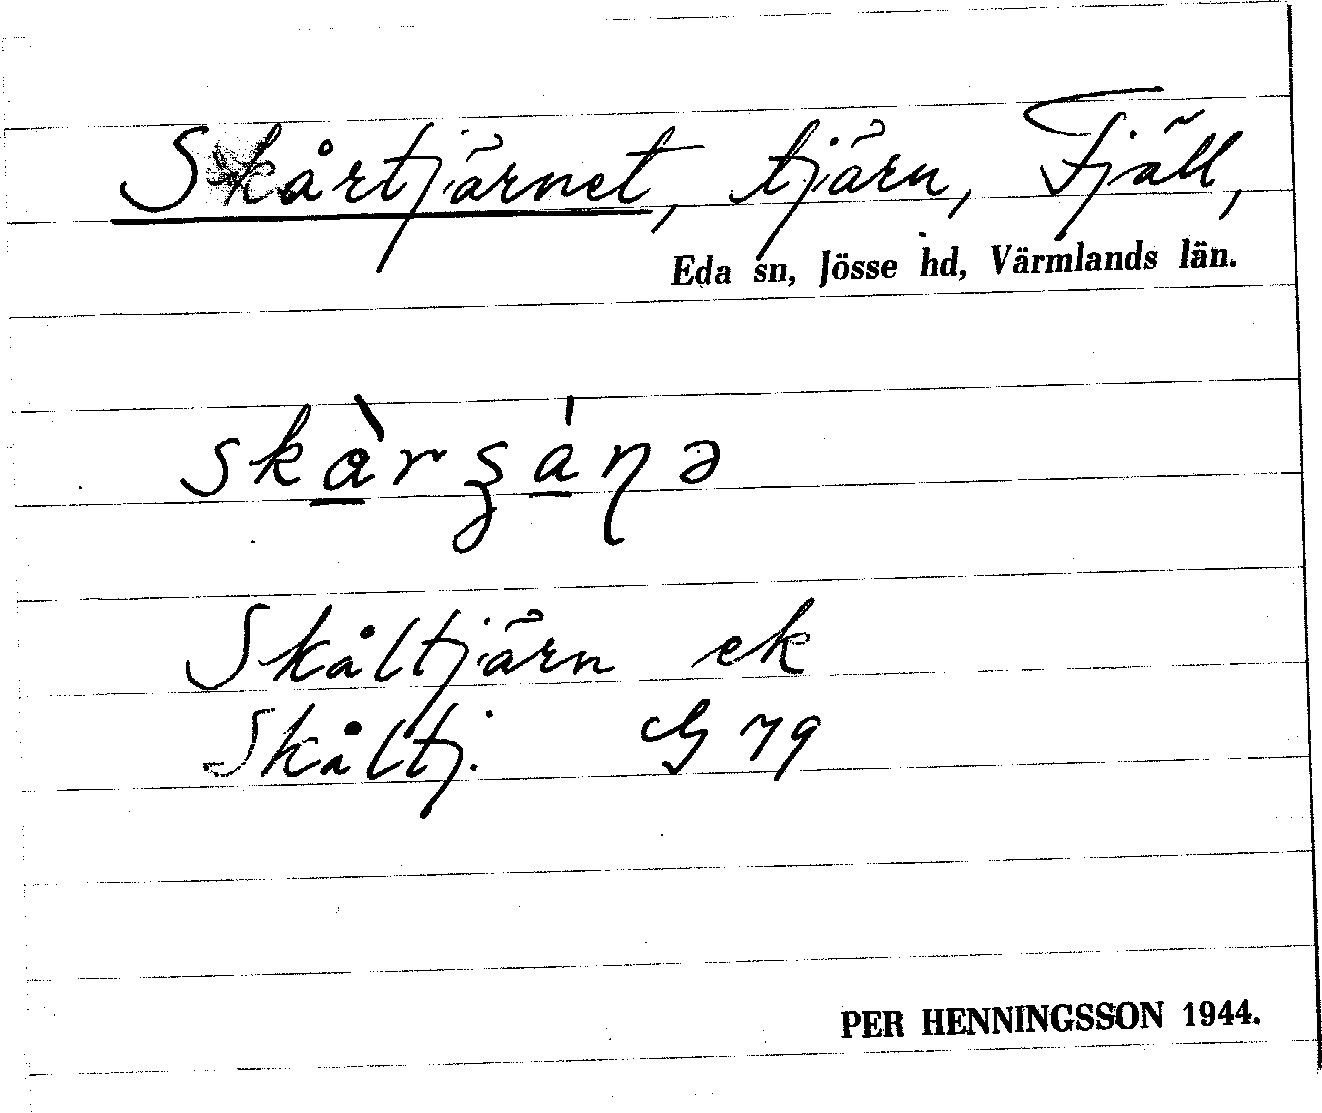 Skårtjärnet, tjärn, Fjäll,
Eda sn, Jösse hd, Värmlands län.
skàrʒánə
Skåltjärn ek
Skåltj. G 79
PER HENNINGSSON 1944.